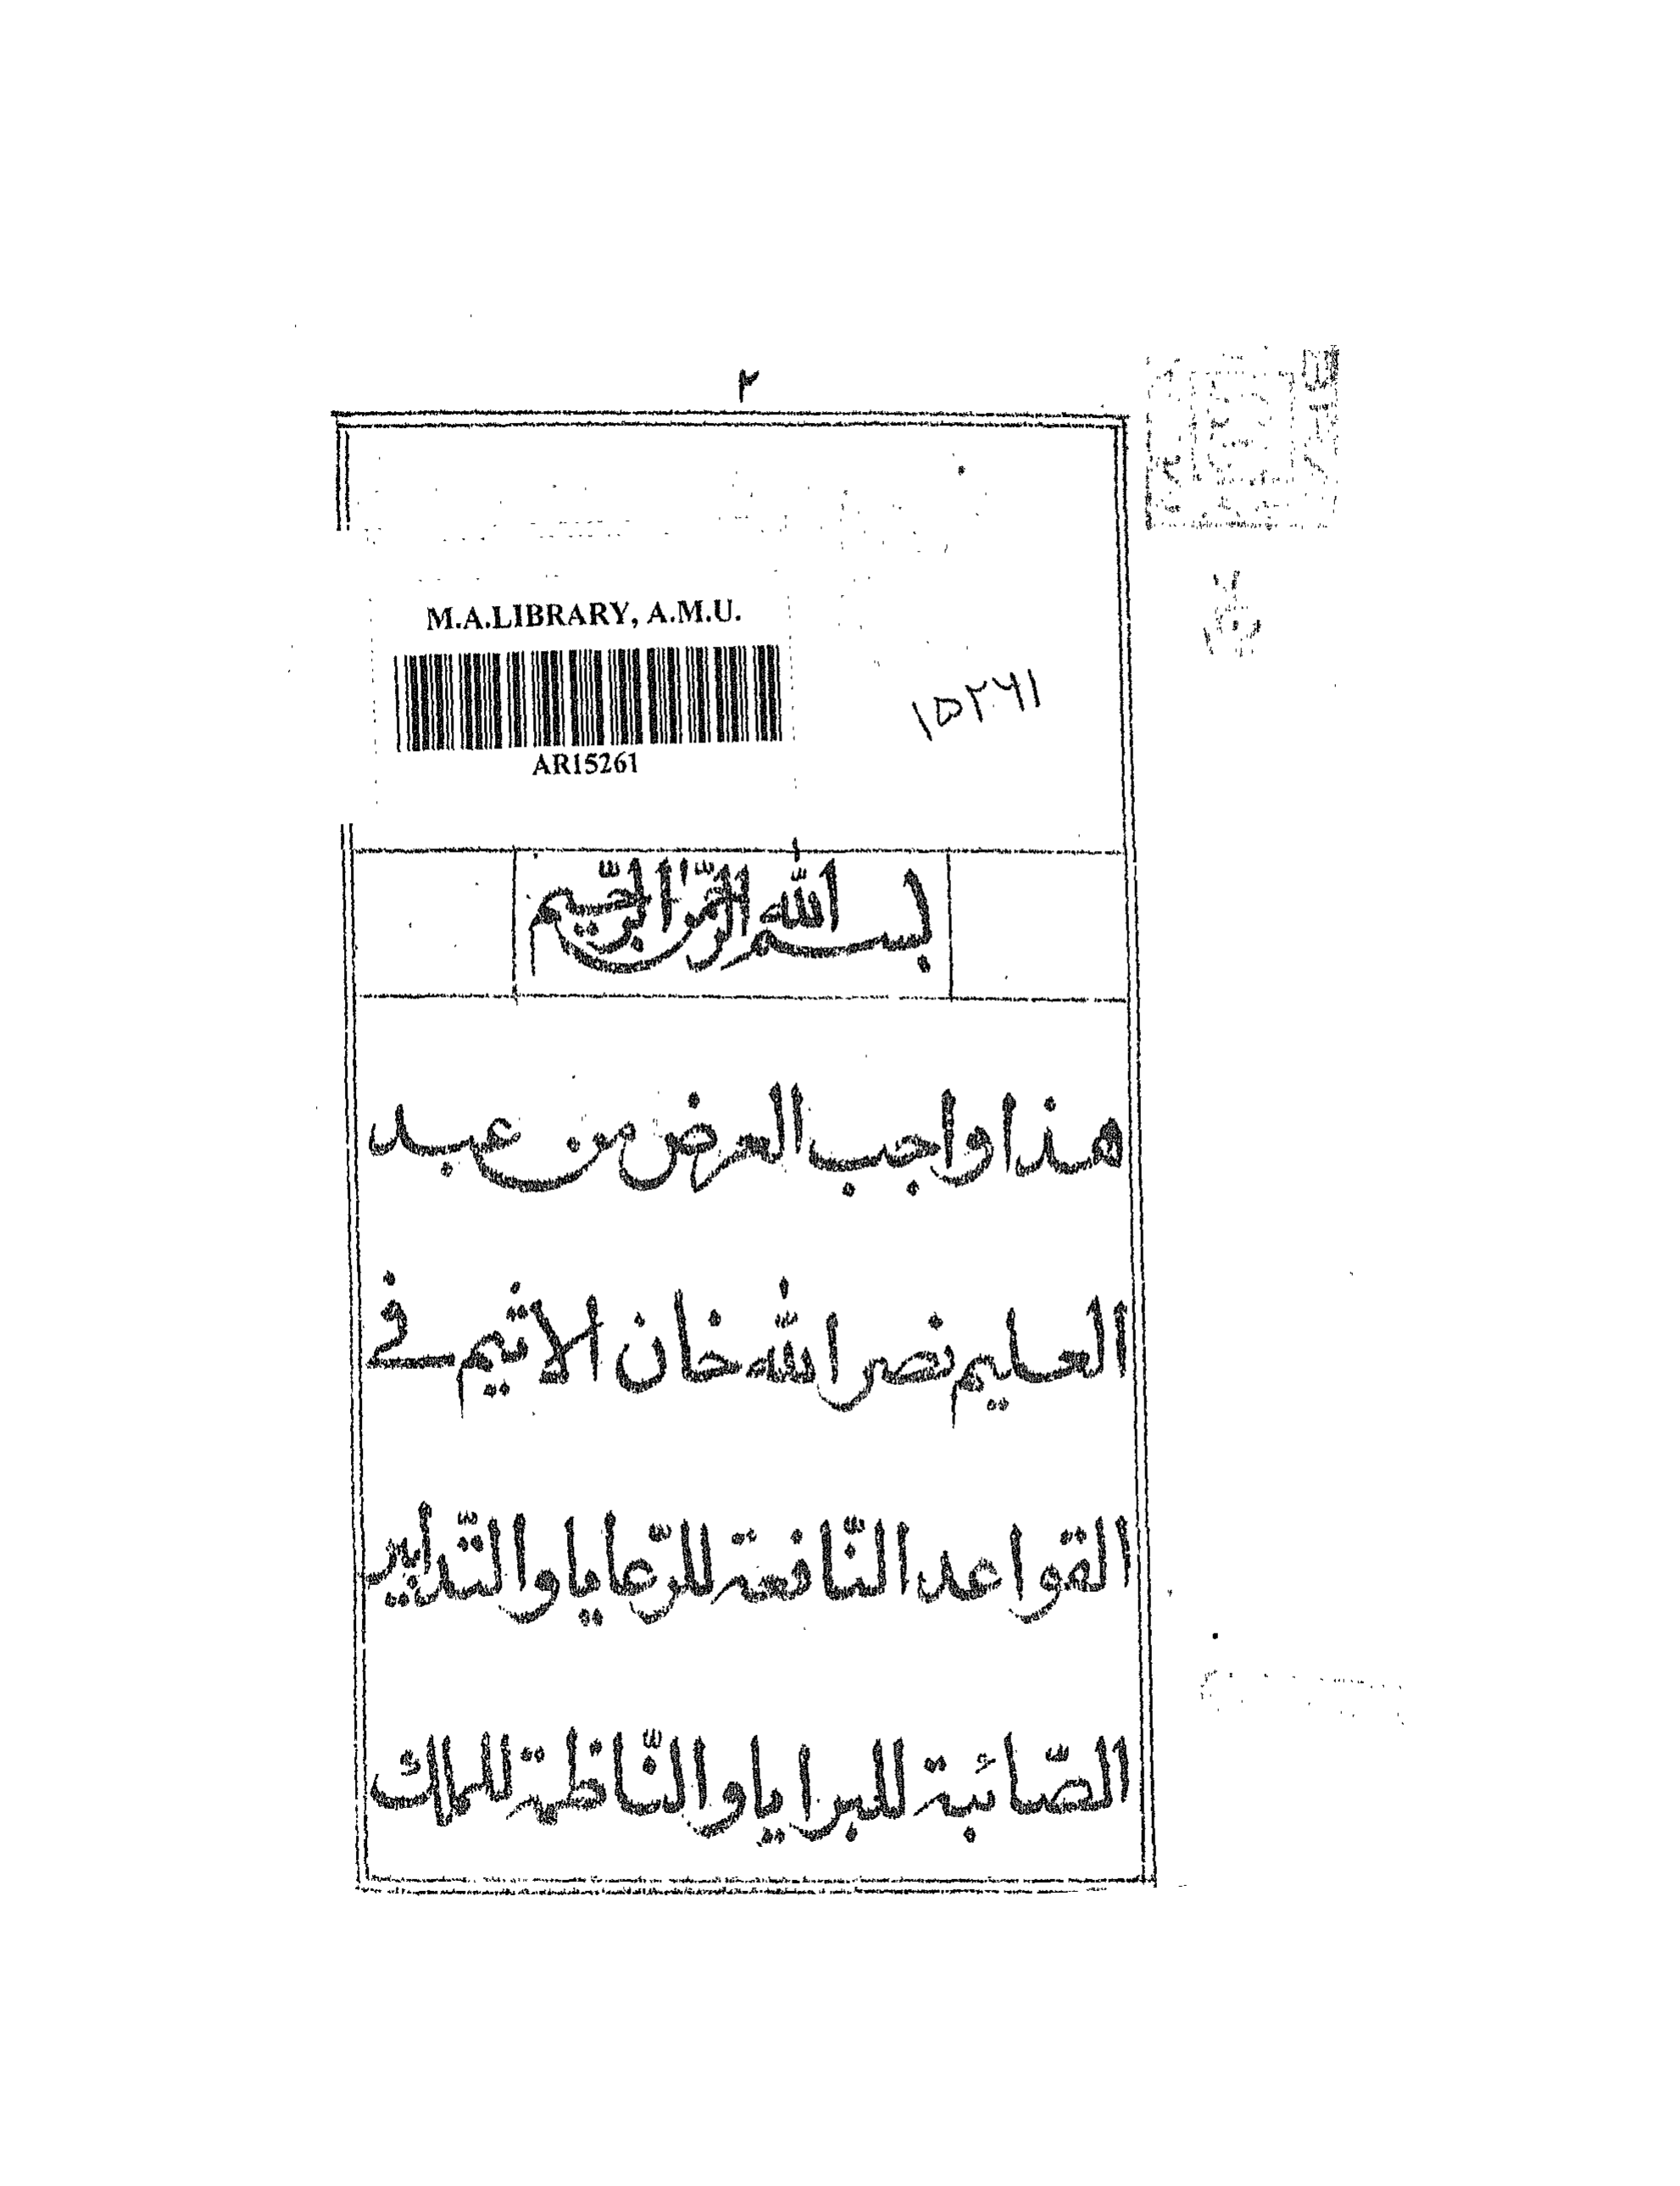 ٢
M.A.LIBRARY, A.M.U.
AR15261
١٥٢٦١
بسم الله الرّحمٰن الرّحيم
هذا واجب العرض من عبد
العليم نصر الله خان الاثيم في
القواعد النّافعة للرّعايا والتّدابير
الصّائبة للبرايا والنّاظمة للملك